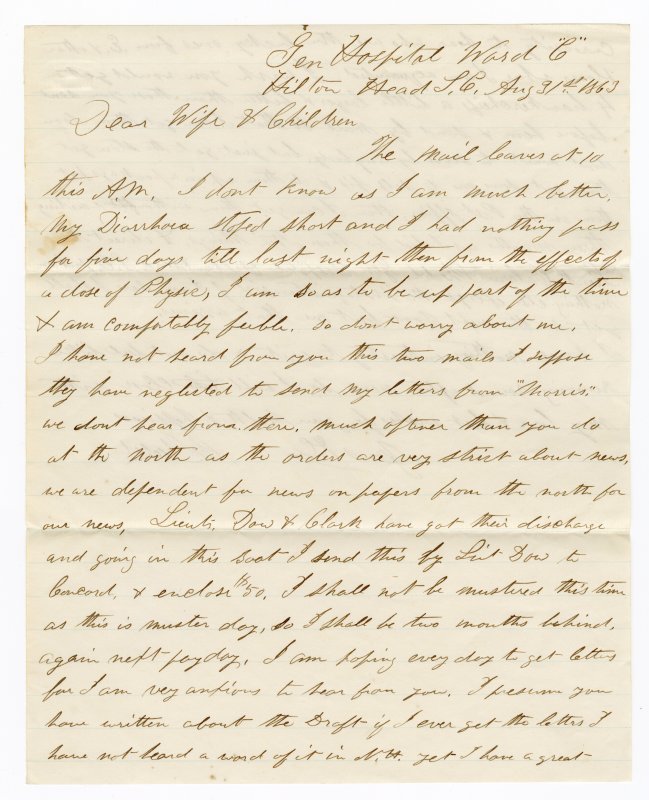 Gen Hospital Ward "C"
Hilton Head S.C. Aug 31st 1863
Dear Wife & Children
The mail leaves at 10
this A.M. I dont know as I am much better.
My Diarrhoea stoped short and I had nothing pass
for five days till last night then from the effects of
a dose of Physic, I am so as to be up part of the time
& am comfortably feeble. so dont worry about me.
I have not heard from you this two mails I suppose
they have neglected to send my letters from "Morris"
we dont hear from there. much oftener than you do
at the North as the orders are very strict about news,
we are dependent for news on papers from the north for
our news, Lieuts. Dow & Clark have got their discharge
and going in this boat I send this by Liut Dow to
Concord, & enclose $50. I shall not be mustered this time
as this is muster day, so I shall be two months behind.
again next payday. I am hoping every day to get letters
for I am very anxious to hear from you. I presume you
have written about the Draft if I ever get the letters I
have not heard a word of it in N.H. yet I have a great